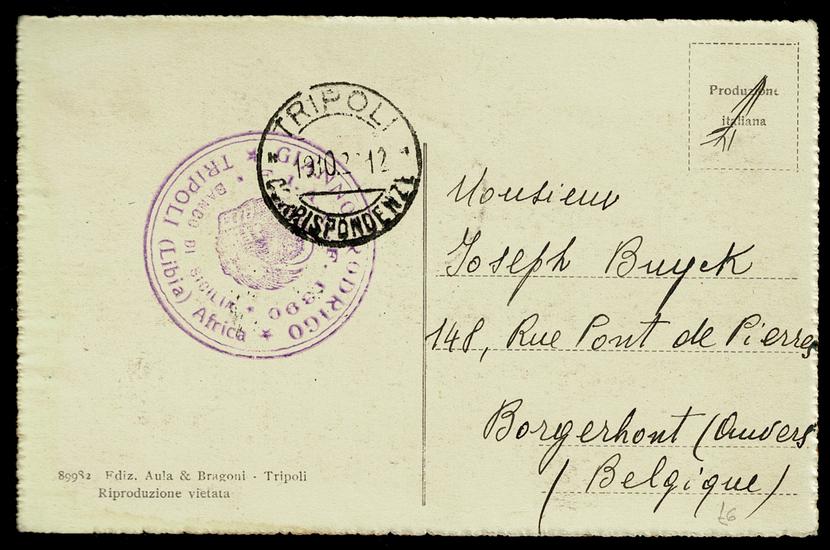 TRIPOLI
CORRISPONDENZE
GIANNO RODRIGO
TRIPOLI (Libia) Africa
BANCO DI SICILIA
F. 1390
Produzione
italiana
Monsieur
Joseph Buyck
148, Rue Pont de Pierres
Borgerhout (Anvers
(Belgique)
89982 Ediz. Aula & Bragoni - Tripoli
Riproduzione vietata
76